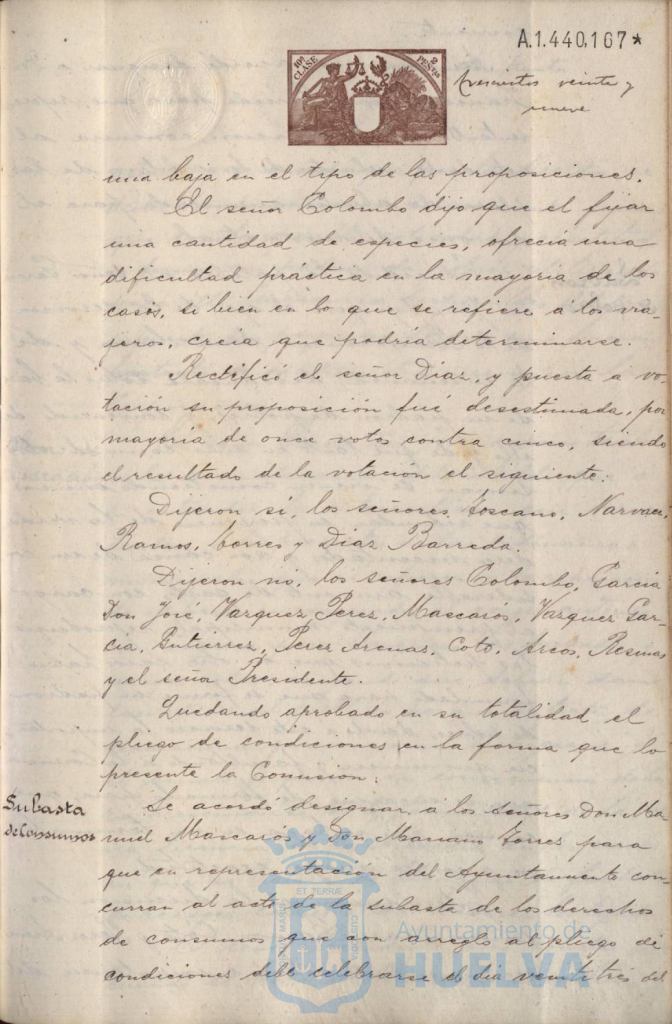 A.1.440,167*
10ª CLASE
2 PESETAS
trescientos veinte y
nueve
una baja en el tipo de las proposiciones.
El señor Colombo dijo que el fijar
una cantidad de especies, ofrecia una
dificultad práctica en la mayoria de los
casos, si bien en lo que se refiere á los via-
jeros, creia que podria determinarse.
Rectificó el señor Diaz, y puesta á vo-
tación su proposición fué desestimada, por
mayoria de once votos contra cinco, siendo
el resultado de la votación el siguiente:
Dijeron sí, los señores Toscano, Narvaez,
Ramos, Torres y Diaz Barreda.
Dijeron nó, los señores Colombo, Garcia
Don José, Vazquez Perez, Mascarós, Vazquez Gar-
cia, Gutierrez, Perez Arenas, Coto, Arcos, Resinas
y el señor Presidente.
Quedando aprobado en su totalidad el
pliego de condiciones en la forma que lo
presente la Comision.
Subasta
de Consumos
Se acordó designar á los señores Don Ma-
nuel Mascarós y Don Mariano Torres para
que en representación del Ayuntamiento con-
curran al acto de la subasta de los derechos
de consumos que con arreglo al pliego de
condiciones debe celebrarse el dia veintitres del
Ayuntamiento de
HUELVA
ET TERRÆ
PORTUS MARIS
CUSTODIA